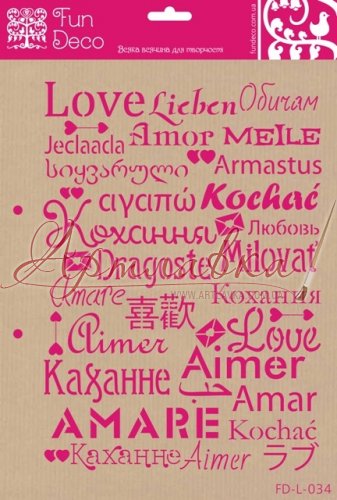 Fun Deco
Всяка всячина для творчості
fundeco.com.ua
Love Lieben Обичам
Jeclaada Amor MEILE
სიყვარული Armastus
αγαπώ Kochać
Кохання Любовь
Dragoste Milovať
Amare 喜歡 Кохання
Aimer Love
Каханне Aimer
حب Amar
AMARE Kochać
Каханне Aimer ラブ
FD-L-034